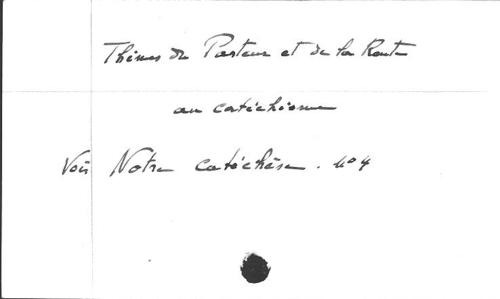 Thèmes du Pasteur et de la Route
au catéchisme
Voir Notre catéchèse. n° 4